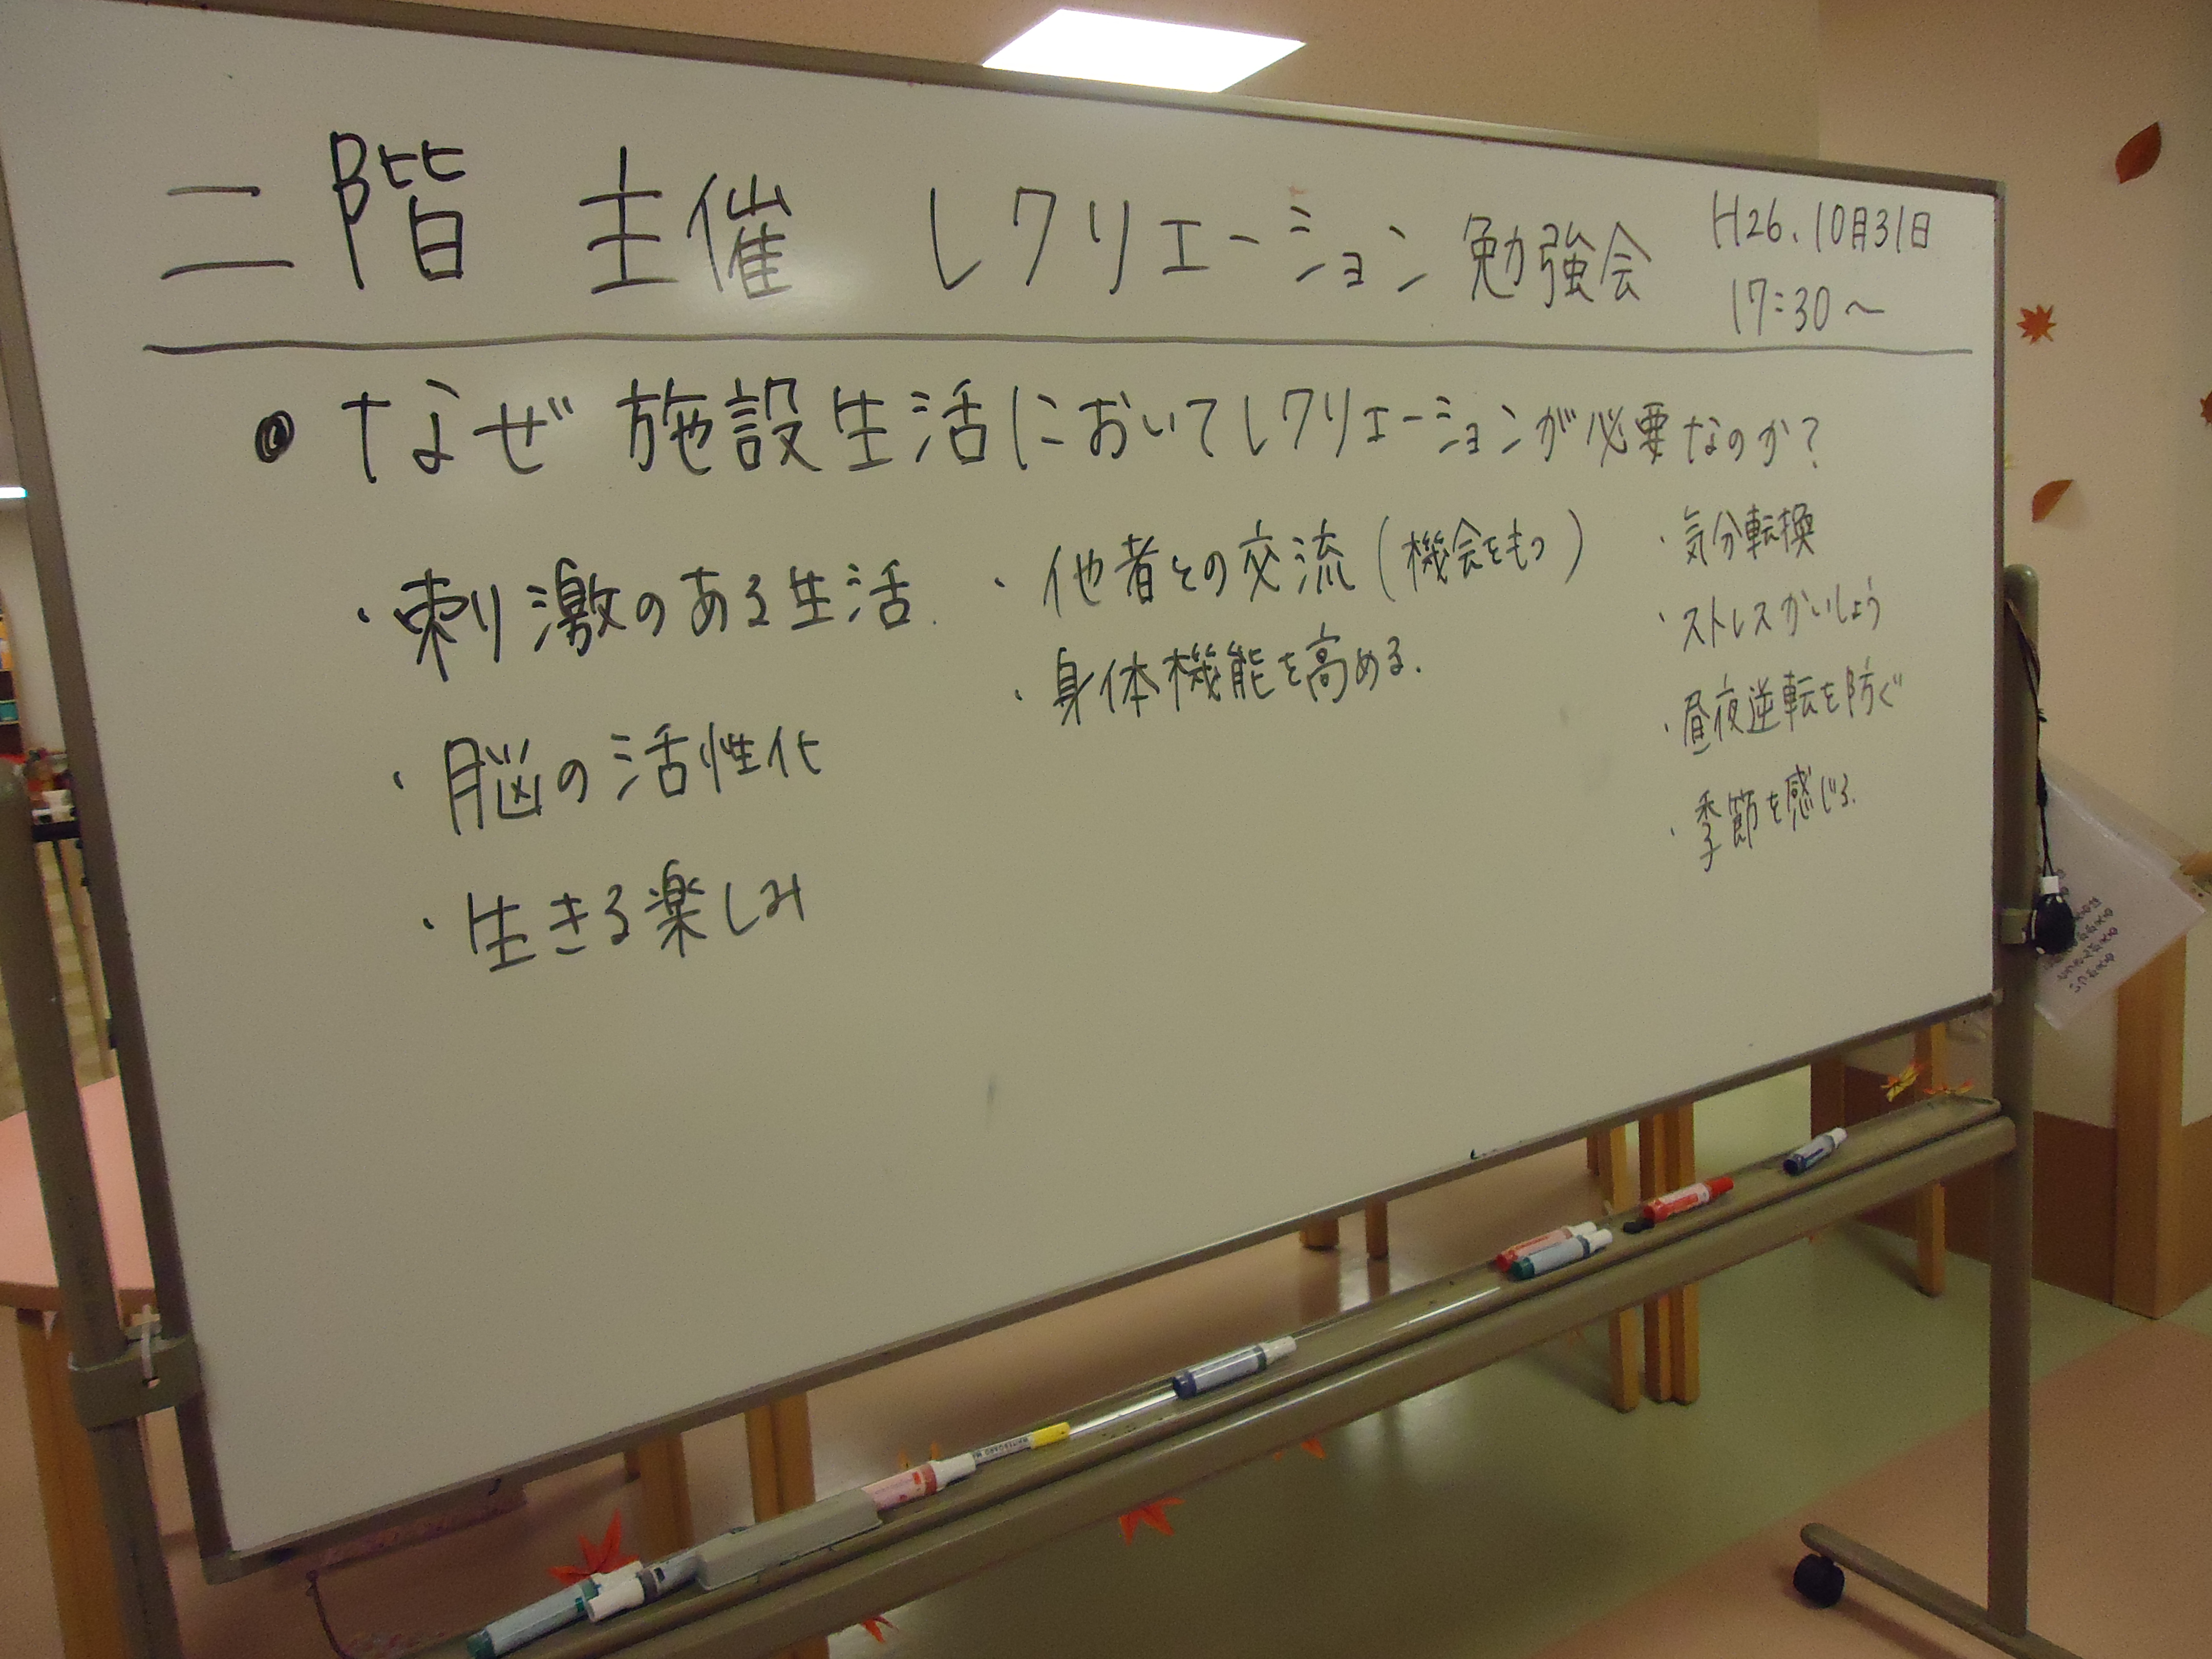 二階 主催 レクリエーション 勉強会
H26.10月31日
17:30〜
なぜ施設生活においてレクリエーションが必要なのか?
・刺激のある生活.
・脳の活性化
・生きる楽しみ
・他者との交流(機会をもつ)
・身体機能を高める.
・気分転換
・ストレスかいしょう
・昼夜逆転を防ぐ
・季節を感じる.